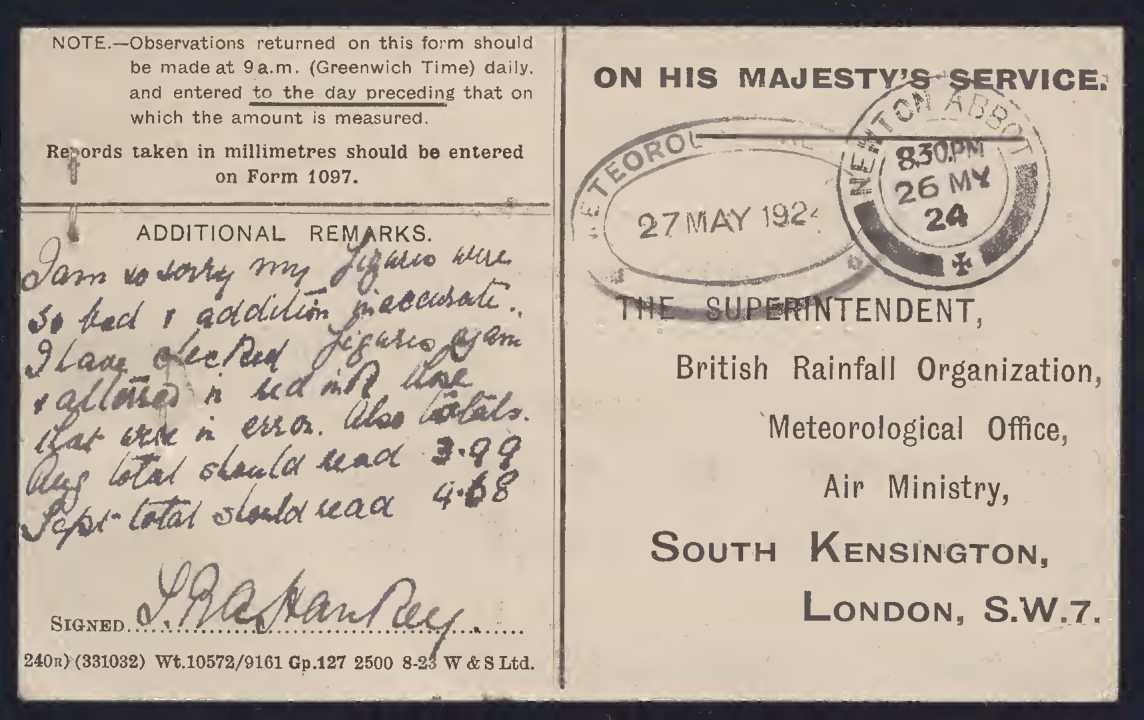 NOTE.—Observations returned on this form should
be made at 9 a.m. (Greenwich Time) daily,
and entered to the day preceding that on
which the amount is measured.
Records taken in millimetres should be entered
on Form 1097.
ADDITIONAL REMARKS.
I am so sorry my figures were
so bad & addition inaccurate.
I have checked figures again
& altered in red ink those
that were in error. Also totals.
Aug total should read 3.99
Sept total should read 4.68
SIGNED
240R) (331032) Wt.10572/9161 Gp.127 2500 8-23 W & S Ltd.
ON HIS MAJESTY'S SERVICE.
METEOROL
27 MAY 192
NEWTON ABBOT
8.30.PM
26 MY
24
THE SUPERINTENDENT,
British Rainfall Organization,
Meteorological Office,
Air Ministry,
SOUTH KENSINGTON,
LONDON, S.W.7.